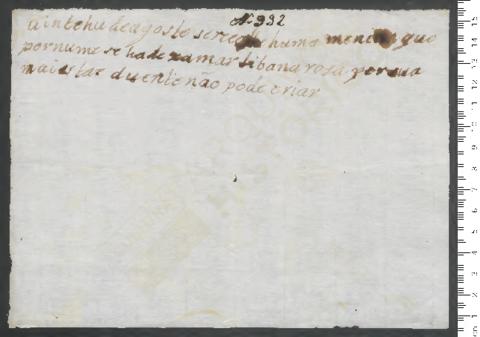 Nº 932
aintehu deagosto sereco huma menina que
pornume se hade xamar libana rosa porsua
mai estar duente não pode criar